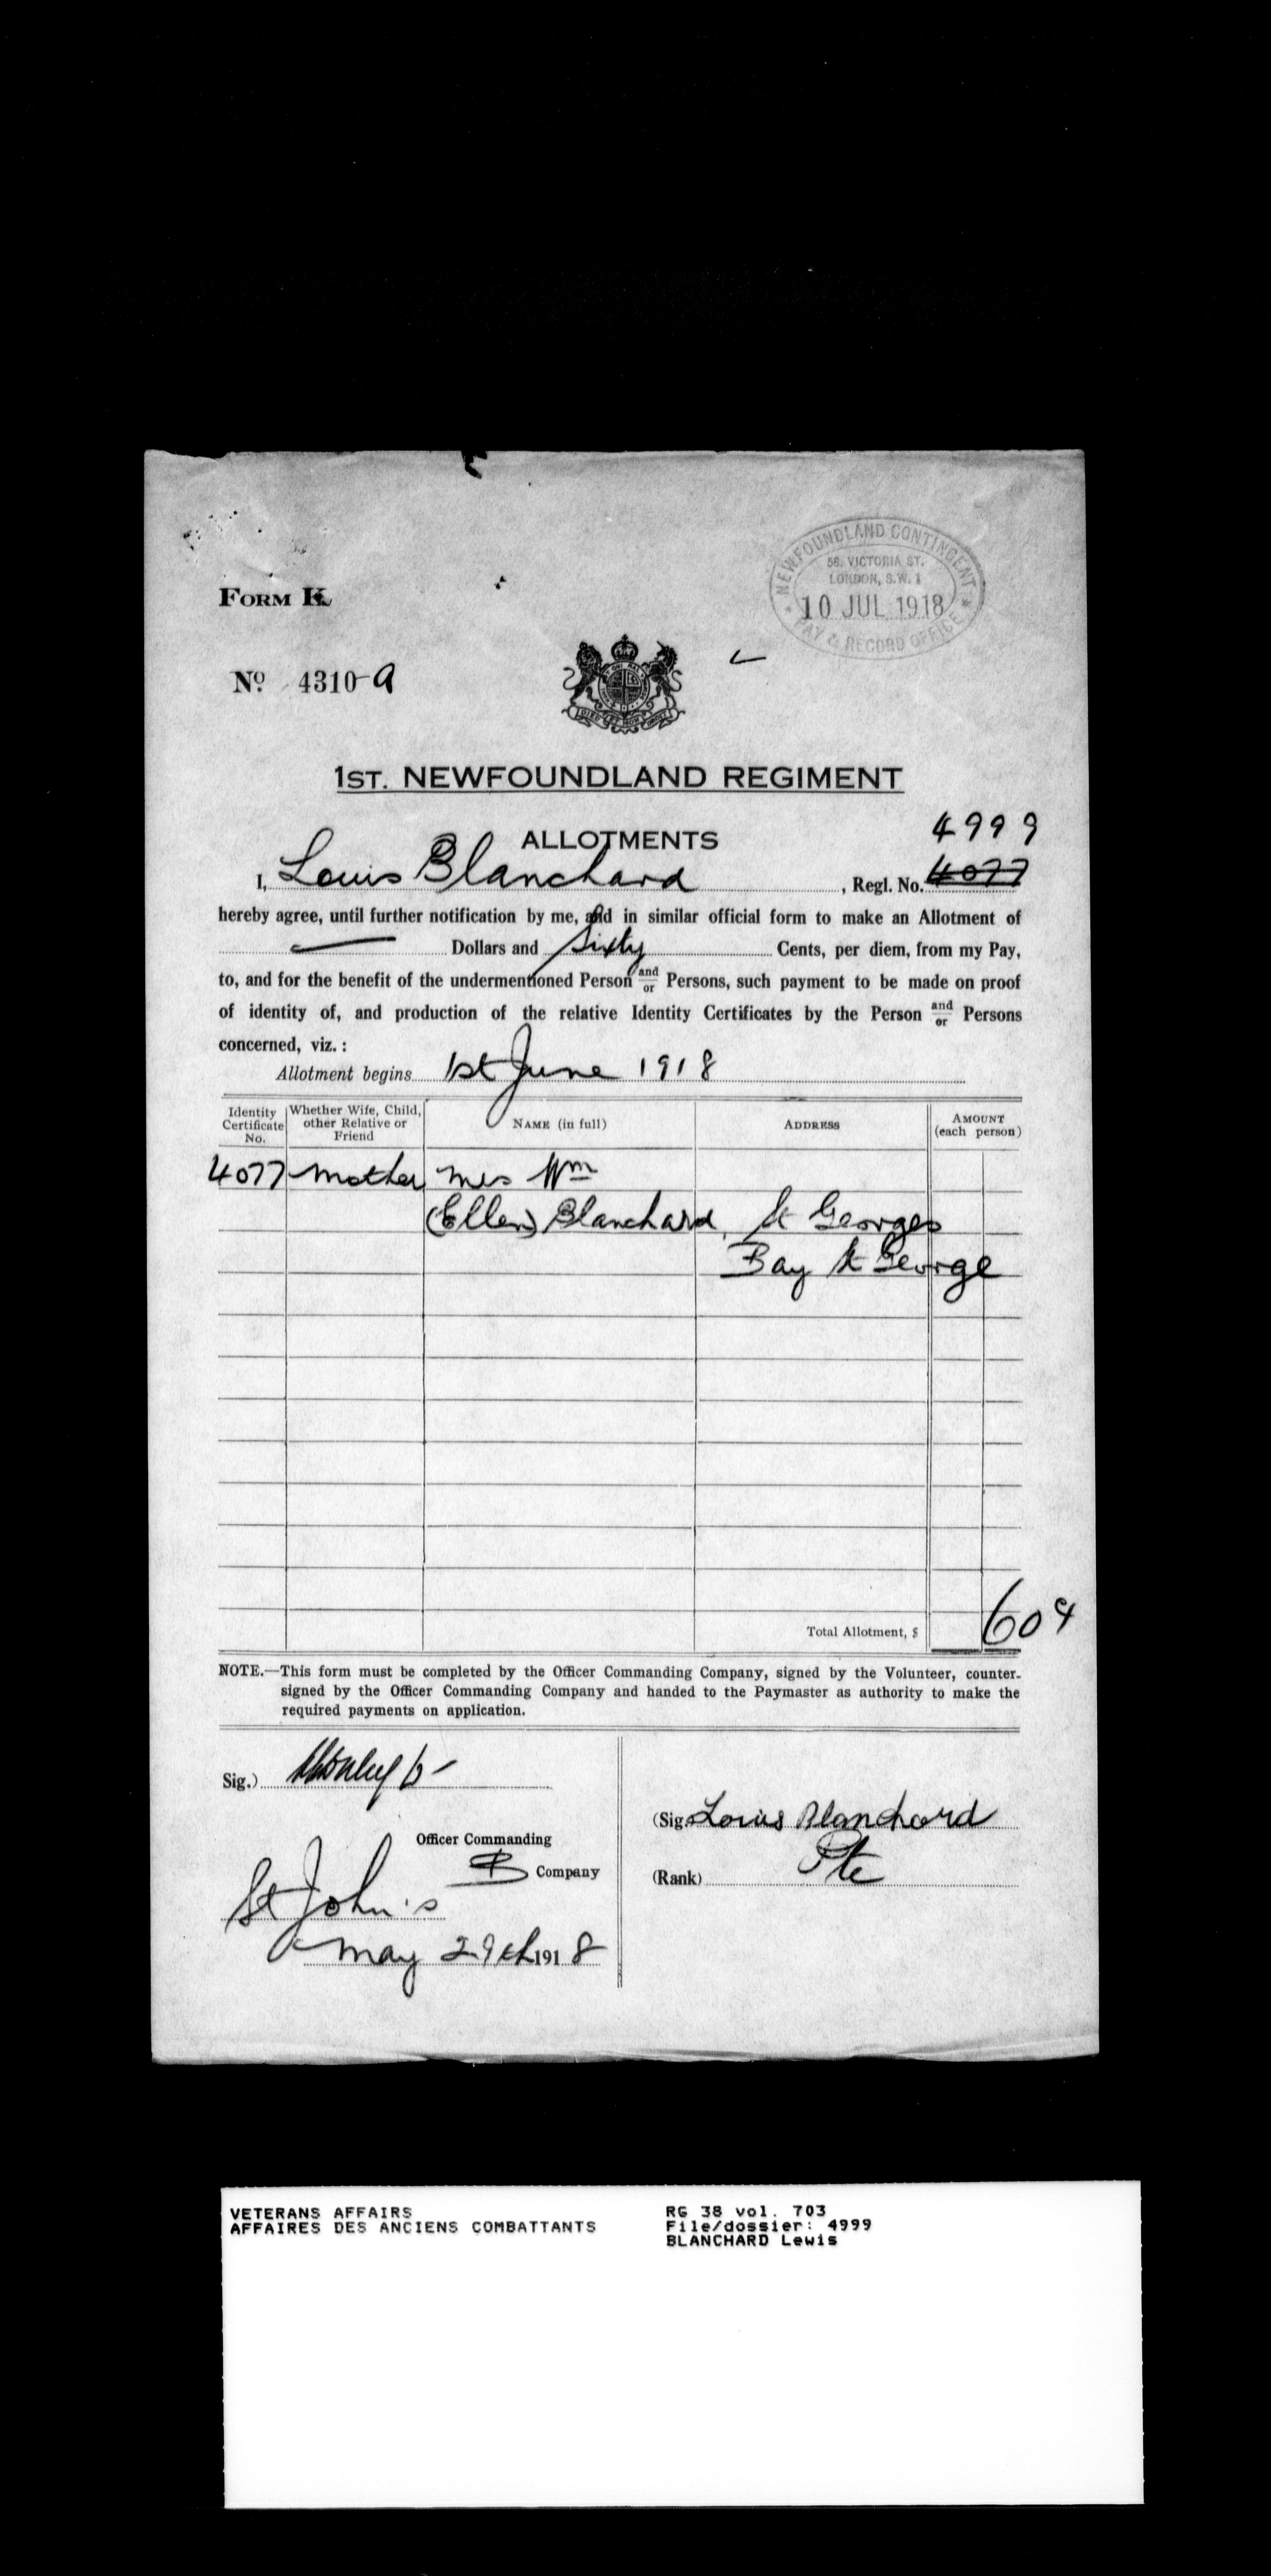 NEWFOUNDLAND CONTINGENT
58, VICTORIA ST.
LONDON, S.W. 1
10 JUL 1918
PAY & RECORD OFFICE
FORM K
No. 4310-a
1ST. NEWFOUNDLAND REGIMENT
ALLOTMENTS
4999
I, Louis Blanchard, Regl. No. 4077
hereby agree, until further notification by me, and in similar official form to make an Allotment of
— Dollars and Sixty Cents, per diem, from my Pay,
to, and for the benefit of the undermentioned Person and/or Persons, such payment to be made on proof
of identity of, and production of the relative Identity Certificates by the Person and/or Persons
concerned, viz. :
Allotment begins 1st June 1918
Identity Certificate No.
Whether Wife, Child, other Relative or Friend
NAME (in full)
ADDRESS
AMOUNT (each person)
4077 Mother Mrs Wm
(Ellen) Blanchard, St Georges
Bay St George
Total Allotment, $ 60 c
NOTE.—This form must be completed by the Officer Commanding Company, signed by the Volunteer, counter-
signed by the Officer Commanding Company and handed to the Paymaster as authority to make the
required payments on application.
Sig.)
Officer Commanding
B Company
St John's
May 29th 1918
(Sig. Louis Blanchard
(Rank) Pte
VETERANS AFFAIRS
AFFAIRES DES ANCIENS COMBATTANTS
RG 38 vol. 703
File/dossier: 4999
BLANCHARD Lewis